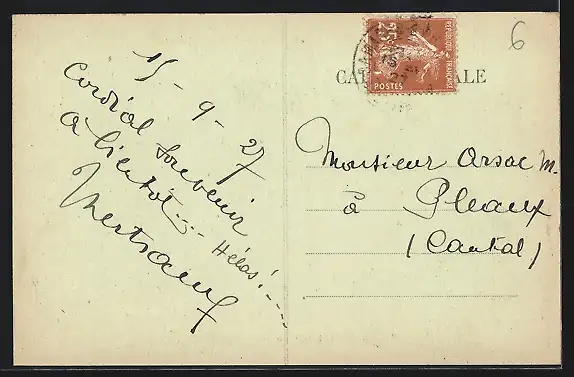 15-9-27
Cordial souvenir
à bientôt....
Hélas!....
Mertrand
6
RÉPUBLIQUE FRANÇAISE
25c
POSTES
CA ALE
Monsieur Arsac M.
à Pleaux
(Cantal)